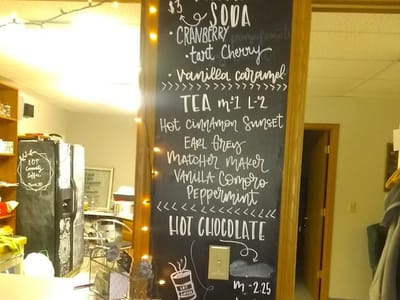 $3 SODA
• CRANBERRY
• tart Cherry
• vanilla caramel
TEA m-1 L-2
Hot cinnamon Sunset
EARL Grey
MATCHER MAKER
VANILLA COMORO
PEPPERMINT
HOT CHOCOLATE
m - 2.25